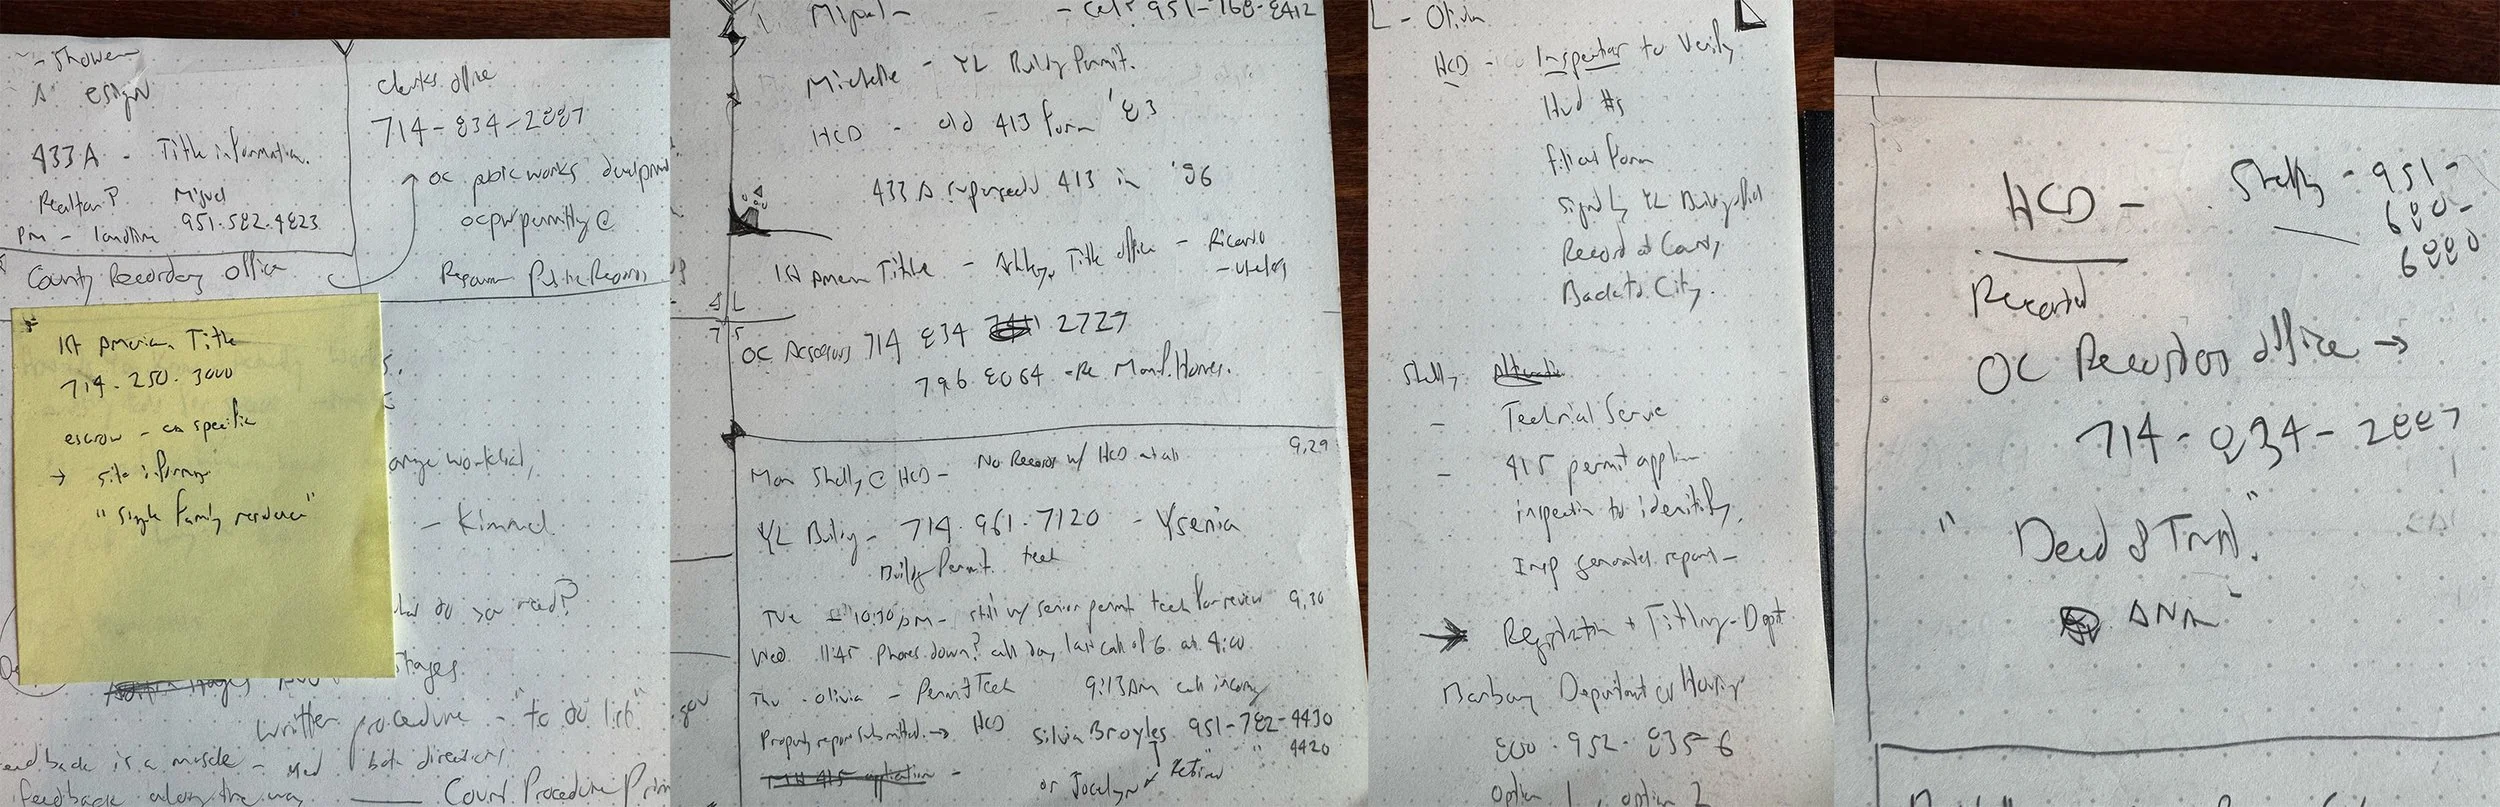 - Shower
esign
433A - Title information.
Realtor? Miguel
pm - landline 951.582.9823
County Recorders office
Clerks office
714-834-2887
OC public works development
ocpwpermitting@
Public Records
1st American Title
714.250.3000
escrow - ca specific
→ site
"single family residence"
- Kimmel
do you need?
written procedure - "to do list"
feedback is a muscle - used both directions.
feedback along the way
Court Procedure
Miguel - - cell? 951-768-8412
Michelle - YL Buildg Permit.
HCD - old 413 form '83
433A superseded 413 in '86
1st American Title - Ashley, Title office - Ricardo
OC Assessors 714 834 2727
796.8064 - Re Manf. Homes.
9.29
Mon Shelly @ HCD - No Record w/ HCD at all
YL Buildg - 714.961.7120 - Ysenia
Buildg Permit tech
Tue 10:30 pm - still w/ senior permit tech for review 9.30
Wed 11:45 phones down? all day, last call of 6 at 4:00
Thu - Olivia - Permit Tech 9:13 AM call incoming
Property report submitted → HCD Silvia Broyles 951-782-4430
" " 4420
or Jocelyn retired
L - Olivia
HCD - Inspector to Verify
Hud #s
fill out form
Record at County
Back to City.
Shelly
- Technical Service
- 415 permit
inspection to identify.
Insp generates report -
→ Registration + Titling - Dept
Department of Housing
800.952.8356
Option 1, option 2
HCD - Shelly - 951-
680-
6880
Recorded
OC Recorders office →
714-834-2887
"Deed of Trust."